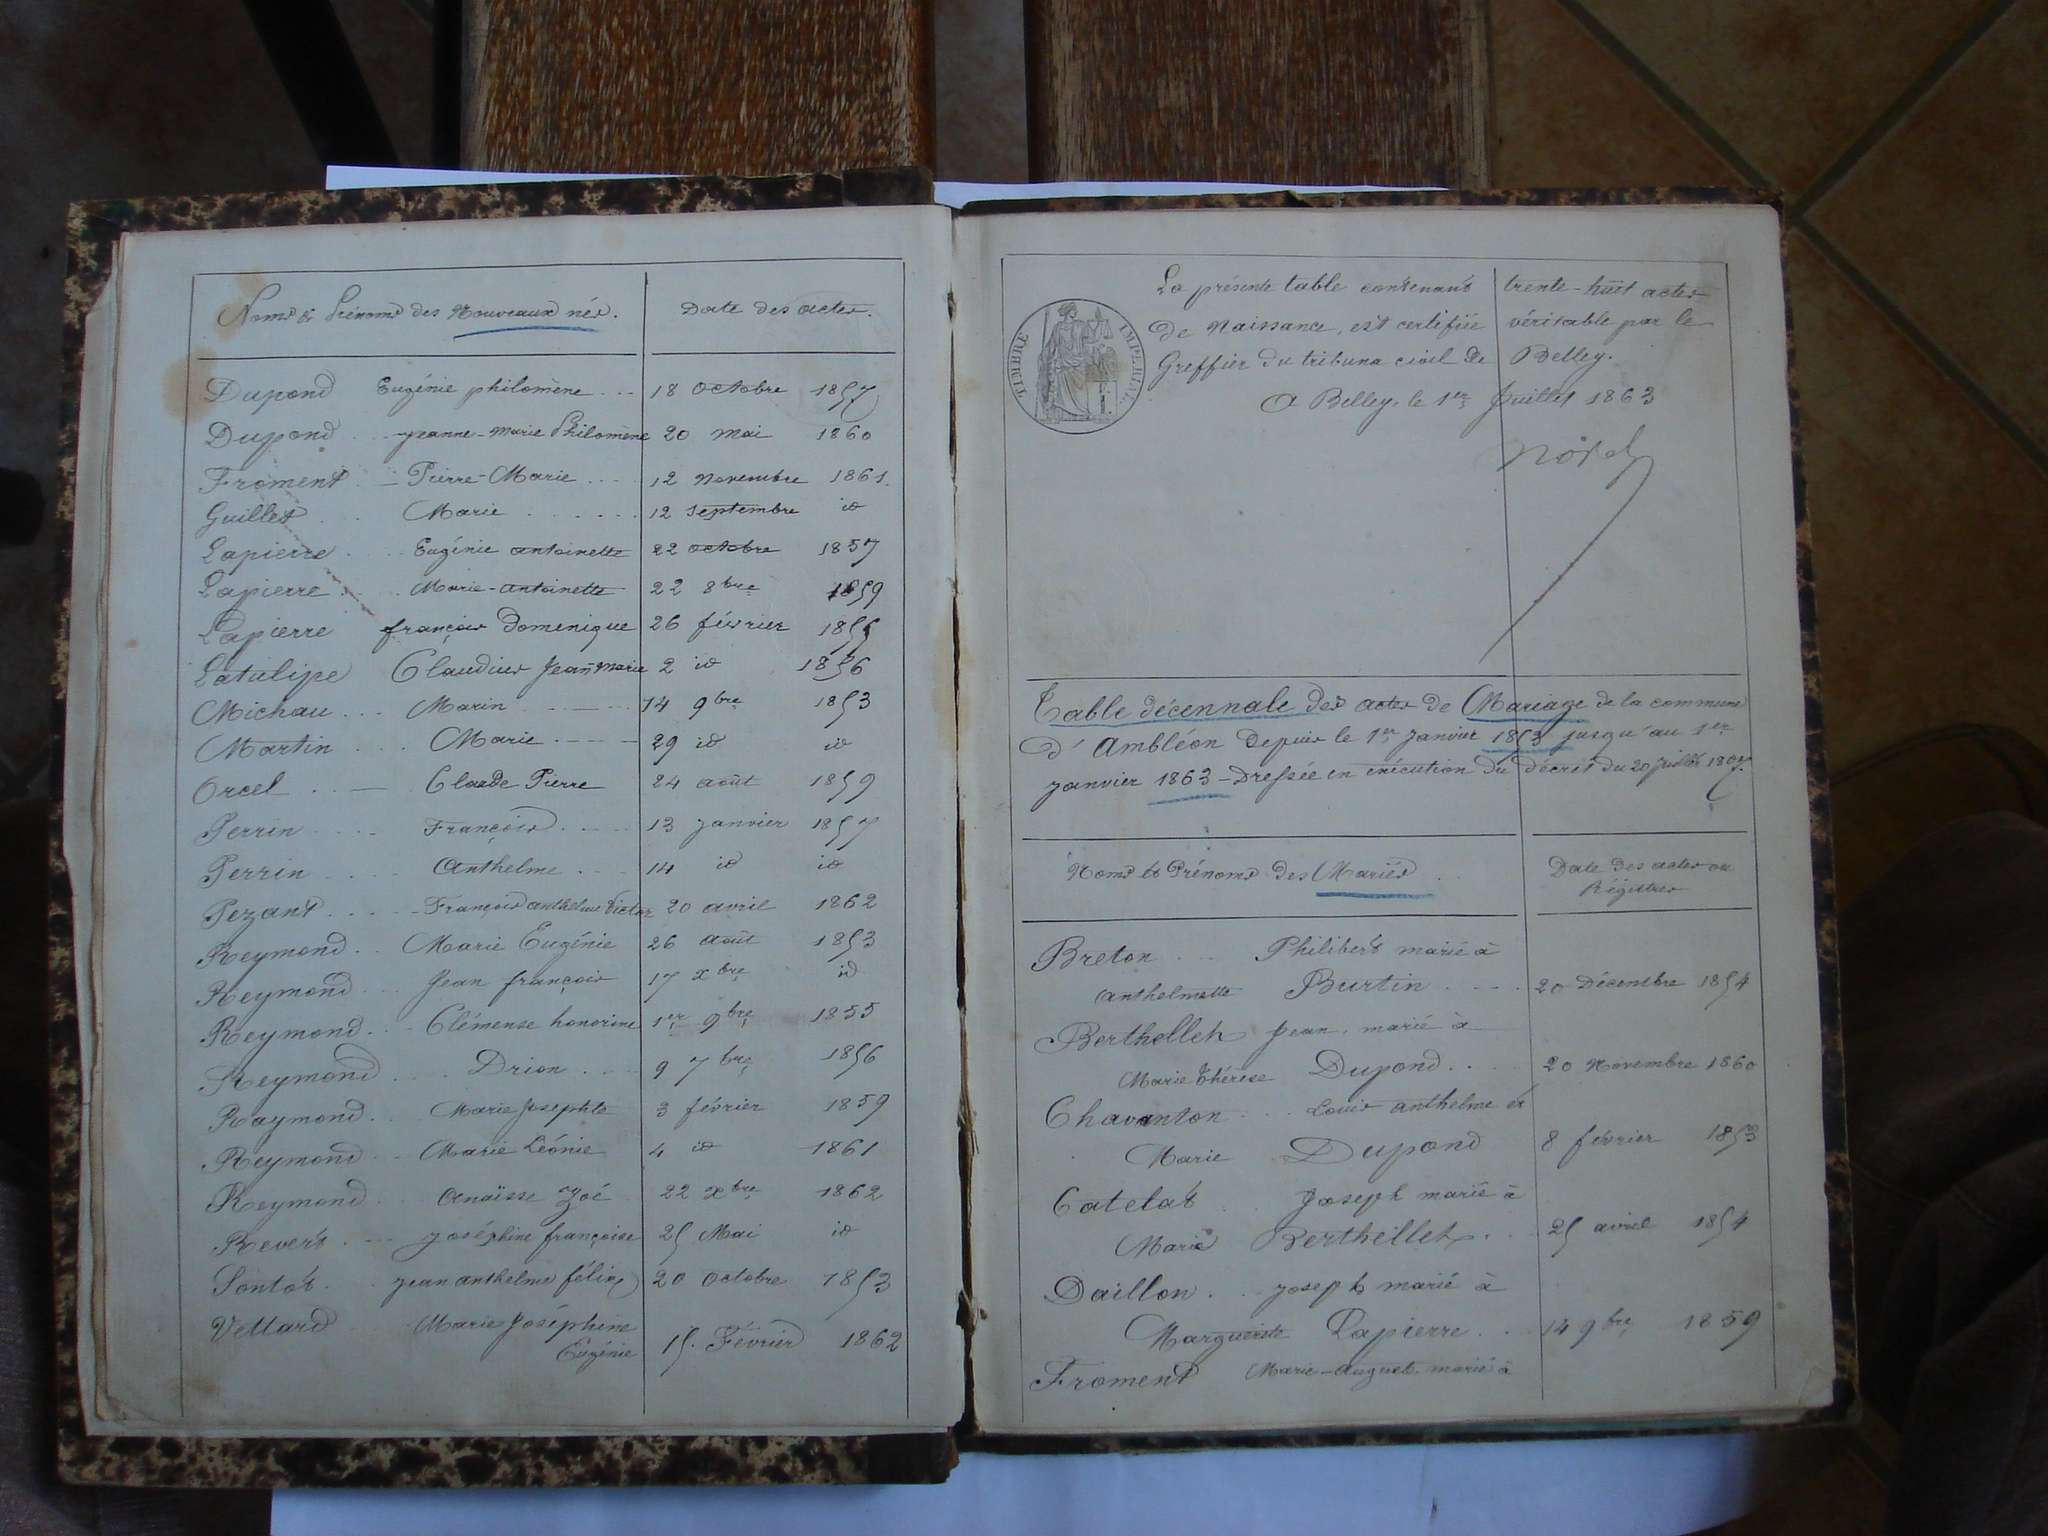 Noms & Prénoms des Nouveaux nés. Date des actes.
Dupond Eugénie philomène 18 Octobre 1857
Dupond Jeanne-Marie Philomène 20 Mai 1860
Froment Pierre-Marie 12 Novembre 1861.
Guillet Marie 12 Septembre id
Lapierre Eugénie antoinette 22 octobre 1857
Lapierre Marie-antoinette 22 8bre 1859
Lapierre françois Domenique 26 février 1855
Latulipe Claudius Jean Marie 2 id 1856
Michau Marin 14 9bre 1853
Martin Marie 29 id id
Orcel Claude Pierre 24 août 1859
Perrin François 13 janvier 1857
Perrin Anthelme 14 id id
Pezant François anthelme Victor 20 avril 1862
Reymond Marie Eugénie 26 août 1853
Reymond Jean françois 17 xbre id
Reymond Clémense honorine 1er 9bre 1855
Reymond Drion 9 7bre 1856
Raymond Marie Josephte 3 février 1859
Reymond Marie Léonie 4 id 1861
Reymond Anaïsse Zoé 22 xbre 1862
Revert Joséphine françoise 25 Mai id
Sontot jean anthelme félix 20 Octobre 1853
Vettard Marie Joséphine
Eugénie 15. Février 1862
TIMBRE IMPERIAL
La présente table contenant trente-huit actes
de Naissance, est certifiée véritable par le
Greffier du tribuna civil de Belley.
A Belley, le 1er Juillet 1863
Table décennale des actes de Mariage de la commune
d'Ambléon Depuis le 1er Janvier 1853 jusqu'au 1er
janvier 1863 - Dressée en exécution du décret du 20 juillet 1807.
Noms et Prénoms des Mariés Date des actes ou
Régistres
Breton Philibert marié à
Anthelmette Burtin 20 Décembre 1854
Berthollet Jean, marié à
Marie Thérèse Dupond 20 Novembre 1860
Chavanton Louis anthelme et
Marie Dupond 8 février 1853
Catelat Joseph marié à
Marie Berthillet 25 avril 1854
Daillon Joseph marié à
Marguerite Lapierre 14 9bre 1859
Froment Marie-August marié à